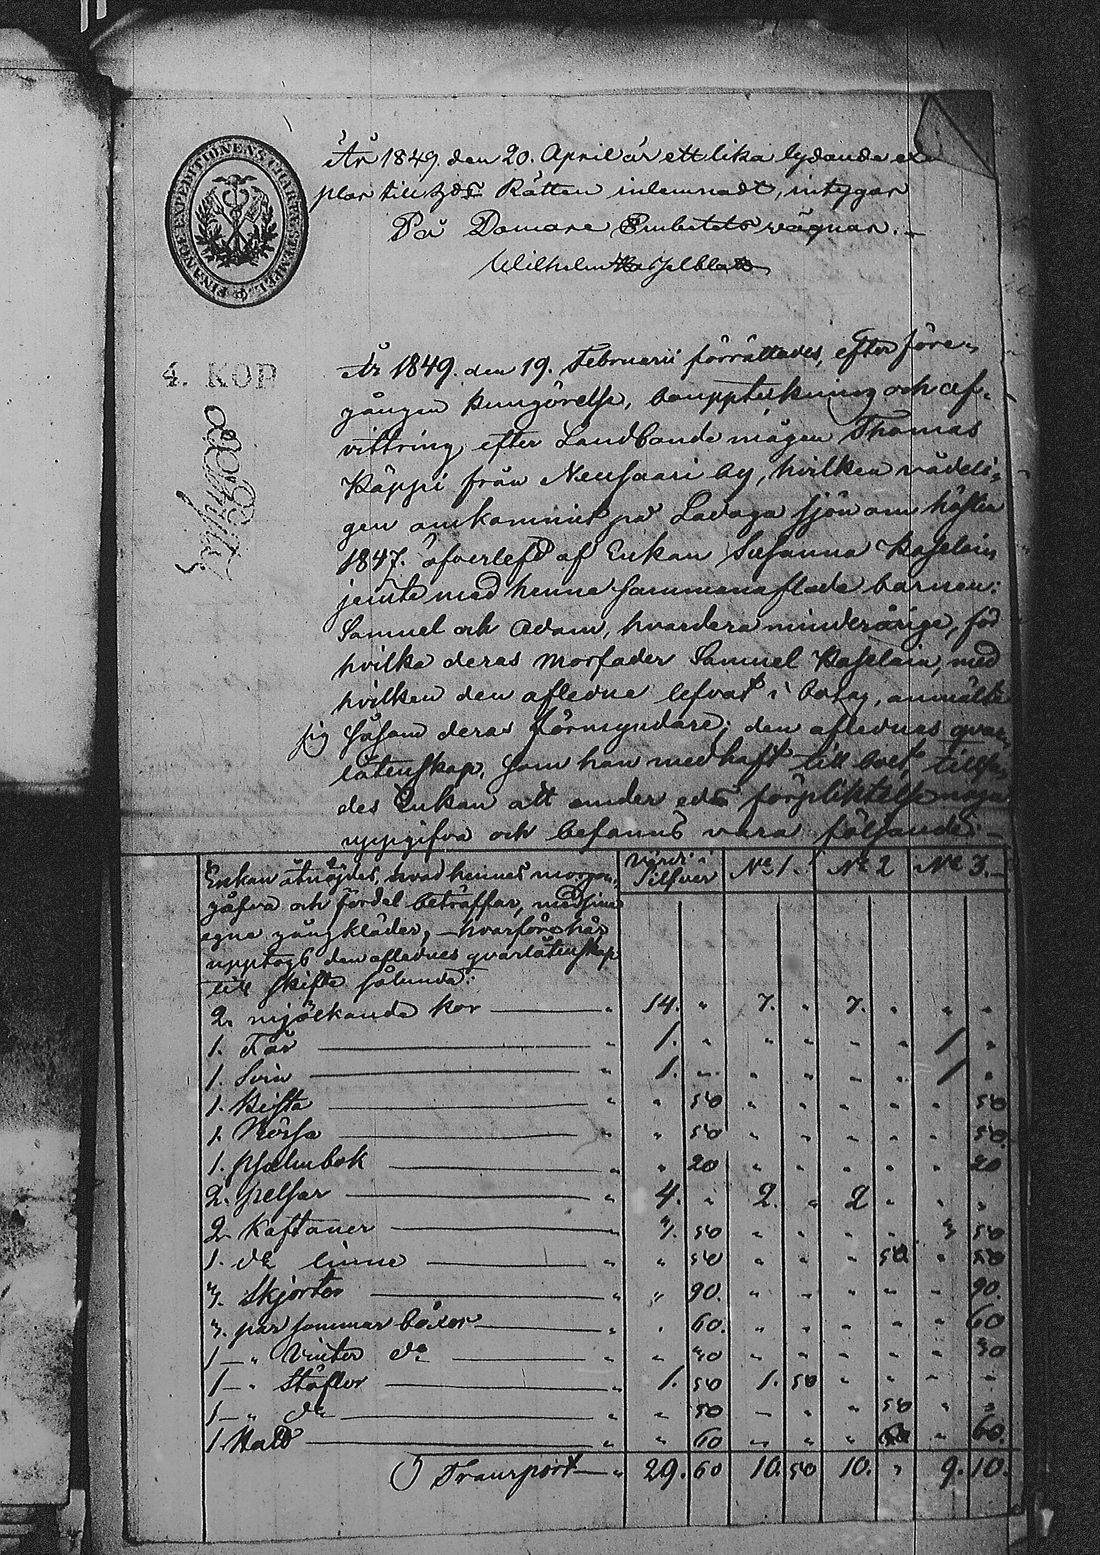 FINANCE EXPEDITIONENS CHARTÆ STEMPEL
År 1849 den 20. April är ett lika lydande exem
plar till Hdr Rätten inlemnadt, intygar
På Domare Embetets vägnar.
Wilhelm Hasselblatt
4. KOP
År 1849. den 19. Februarii förrättades, efter före-
gången kungörelse, bouppteckning och af-
vittring efter Landbonde mågen Thomas
Käppi från Neusaari by, hvilken vådeli-
gen omkommit på Ladoga sjön om hösten
1847. öfverlefd af Enkan Susanna
jemte med henne sammanaflade barnen:
Samuel och Adam, hvardera minderårige, för
hvilka deras morfader Samuel med
hvilken den afledne lefvat i bolag, anmälte
sig såsom deras Förmyndare; den aflednes qvar-
låtenskap, som han medhaft till boet,
des Enkan att under eds förpliktelse noga
uppgifva och befanns vara följande:
Enkan åtnöjdes, hvad hennes morgon-
gåfva och fördel beträffar, med sine
egne gångkläder, hvarföre här
upptogs den aflednes qvarlåtenskap
till skifte sålunda:
Värde i Silfver № 1. № 2 № 3.
2. mjölkande kor — " 14. " 7. " 7. " " "
1. Får — " 1. " " " " " 1 "
1. Svin — " 1. " " " " " 1 "
1. Kista — " " 50 " " " " " 50
1. — " " 50 " " " " " 50.
1. Psalmbok — " " 20 " " " " " 20
2. pelsar — " 4. " 2. " 2 " " "
2. Kaftaner — " 3. 50 " " " " 3 50
1. do linne — " " 50 " " " 50 "
3. Skjortor — " " 90. " " " " " 90.
3. par sommar böxor — " " 60. " " " " " 60
1 — " Vinter do — " " 30 " " " " " 30
1 — " Stöflor — " 1. 50 1. 50 " " " "
1 — " do — " " 50 " " " 50 " "
1 — " " 60 " " " " 60.
Transport — " 29. 60 10. 50 10. " 9. 10.